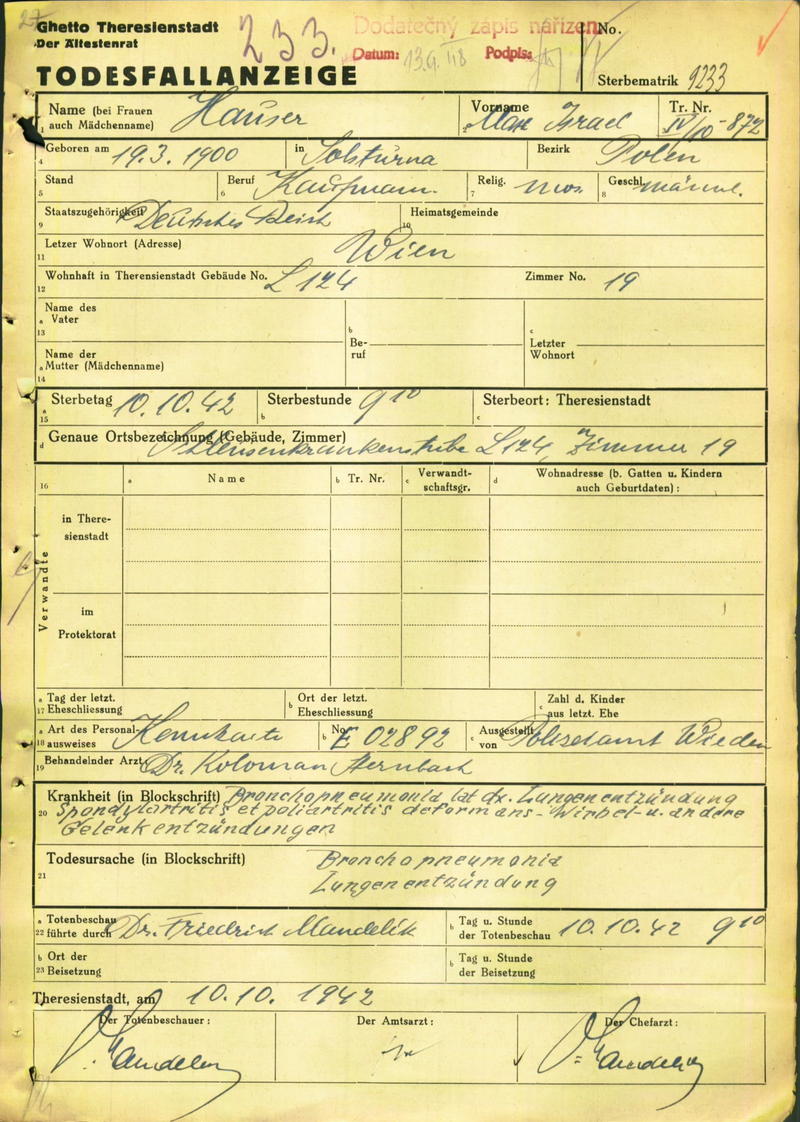 Ghetto Theresienstadt
Der Ältestenrat
233.
Dodatečný zápis nařízen
Datum: 13.9. Podpis:
No.
TODESFALLANZEIGE
Sterbematrik 9233
Name (bei Frauen auch Mädchenname) Hauser
Vorname Max Israel
Tr. Nr. IV/10-872
Geboren am 19.3.1900 in Bezirk Polen
Stand Beruf Kaufmann. Relig. mos. Geschl. männl.
Staatszugehörigkeit Deutsches Reich Heimatsgemeinde
Letzer Wohnort (Adresse) Wien
Wohnhaft in Theresienstadt Gebäude No. L 124 Zimmer No. 19
Name des Vater
Beruf
Letzter Wohnort
Name der Mutter (Mädchenname)
Sterbetag 10.10.42 Sterbestunde 9 10 Sterbeort: Theresienstadt
Genaue Ortsbezeichnung (Gebäude, Zimmer) Schleusenkrankenstube L124, Zimmer 19
Name Tr. Nr. Verwandtschaftsgr. Wohnadresse (b. Gatten u. Kindern auch Geburtdaten):
Verwandte
in Theresienstadt
im Protektorat
Tag der letzt. Eheschliessung
Ort der letzt. Eheschliessung
Zahl d. Kinder aus letzt. Ehe
Art des Personalausweises Kennkarte No. E 02892 Ausgestellt von Polizeiamt Wieden
Behandelnder Arzt Dr. Koloman Sternbach
Krankheit (in Blockschrift) Bronchopneumonia lat dx. Lungenentzündung
Spondylartritis et poliartritis deformans - Wirbel- u. andere
Gelenkentzündungen
Todesursache (in Blockschrift) Bronchopneumonia
Lungenentzündung
Totenbeschau führte durch Dr. Friedrich Mandelik
Tag u. Stunde der Totenbeschau 10.10.42 9 10
Ort der Beisetzung
Tag u. Stunde der Beisetzung
Theresienstadt, am 10.10.1942
Der Totenbeschauer: Der Amtsarzt: Der Chefarzt: